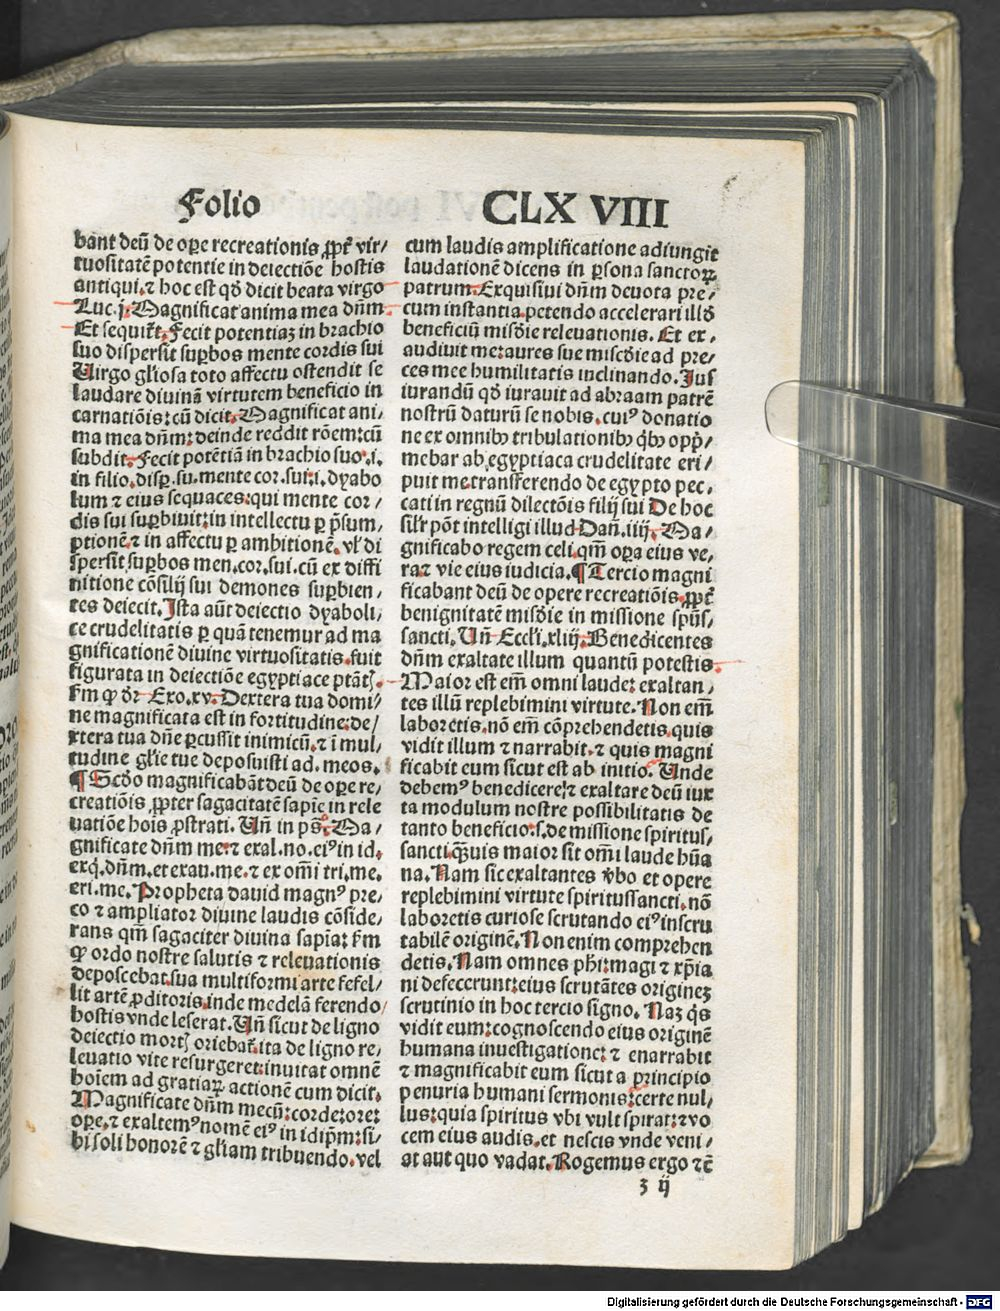 Folio CLX VIII
bant deū de ope recreationis ꝓpt̄ vir/
tuositatē potentie in deiectiōe hostis
antiqui.⁊ hoc est qd̄ dicit beata virgo
Luc.j. Magnificat anima mea dn̄m.
Et sequit̄. Fecit potentiaꝫ in brachio
suo dispersit suꝑbos mente cordis sui
Uirgo gl̄iosa toto affectu ostendit se
laudare diuinā virtutem beneficio in
carnatiōis: cū dicit. Magnificat ani/
ma mea dn̄m: deinde reddit rōem: cū
subdit. Fecit potētiā in brachio suo .i.
in filio. disꝑ. su. mente cor. sui: i. dyabo
lum ⁊ eius sequaces: qui mente cor/
dis sui suꝑbiuit: in intellectu ꝑ p̄sum/
ptionē ⁊ in affectu ꝑ ambitionē. vl̄ di
spersit suꝑbos men. cor. sui. cū ex diffi
nitione cōsilij sui demones suꝑbien/
tes deiecit. Ista aūt deiectio dyaboli/
ce crudelitatis ꝑ quā tenemur ad ma
gnificationē diuine virtuositatis. fuit
figurata in deiectiōe egyptiace ptātꝭ.
fm̄ ꝙ dr̄ Exo.xv. Dextera tua domi/
ne magnificata est in fortitudine: de/
xtera tua dn̄e ꝑcussit inimicū. ⁊ ī mul/
tudine gl̄ie tue deposuisti ad. meos.
¶ Scd̄o magnificabāt deū de ope re/
creatiōis ꝓpter sagacitatē sapiē in rele
uatiōe hois ꝓstrati. Un̄ in ps̄. Ma/
gnificate dn̄m me. ⁊ exal. no. eiꝰ in id.
exq̄. dn̄m. et exau. me. ⁊ ex om̄i tri. me.
eri. me. Propheta dauid magnꝰ pre/
co ⁊ ampliator diuine laudis cōside/
rans qm̄ sagaciter diuina sapīa: fm̄
ꝙ ordo nostre salutis ⁊ releuationis
deposcebat. sua multiformi arte fefel/
lit artē ꝓditoris. inde medelā ferendo
hostis vnde leserat. Un̄ sicut de ligno
deiectio mortꝭ oriebat̄. ita de ligno re/
leuatio vite resurgeret: inuitat omnē
hoīem ad gratiaꝝ actionē cum dicit.
Magnificate dn̄m mecū: corde: ore:
ope. ⁊ exaltemꝰ nomē eiꝰ in idip̄m: si/
bi soli honorē ⁊ gl̄iam tribuendo. vel
cum laudis amplificatione adiungit
laudationē dicens in ꝑsona sanctoꝝ
patrum. Exquisiui dn̄m deuota pre/
cum instantia. petendo accelerari illd̄
beneficiū misd̄ie releuationis. Et ex/
audiuit me: aures sue miscd̄ie ad pre/
ces mee humilitatis inclinando. Jus
iurandū qd̄ iurauit ad abraam patrē
nostrū daturū se nobis. cuiꝰ donatio
ne ex omnibꝫ tribulationibꝫ qͥbꝫ opp̄/
mebar ab egyptiaca crudelitate eri/
puit me transferendo de egypto pec/
cati in regnū dilectōis filij sui De hoc
silr̄ pōt intelligi illud Dan̄. iiij. Ma/
gnificabo regem celi. qm̄ oꝑa eius ve/
ra: ⁊ vie eius iudicia. ¶ Tercio magni
ficabant deū de opere recreatiōis. ꝓpt̄
benignitatē misd̄ie in missione spūs/
sancti. Un̄ Eccli̅. xliij. Benedicentes
dn̄m exaltate illum quantū potestis.
Maior est em̄ omni laude: exaltan/
tes illū replebimini virtute. Non em̄
laboretis. nō em̄ cōprehendetis. quis
vidit illum ⁊ narrabit. ⁊ quis magni
ficabit eum sicut est ab initio. Unde
debemꝰ benedicere ⁊ exaltare deū iux
ta modulum nostre possibilitatis de
tanto beneficio. s. de missione spiritus/
sancti. qͣuis maior sit om̄i laude hūa
na. Nam sic exaltantes v̄bo et opere
replebimini virtute spiritussancti. nō
laboretis curiose scrutando eiꝰ inscru
tabilē originē. Non enim comprehen
detis. Nam omnes phi̅: magi ⁊ xp̄ia
ni defecerunt: eius scrutātes origineꝫ
scrutinio in hoc tercio signo. Naꝫ qͥs
vidit eum: cognoscendo eius originē
humana inuestigatione: ⁊ enarrabit
⁊ magnificabit eum sicut a principio
penuria humani sermonis: certe nul/
lus: quia spiritus vbi vult spirat: ⁊ vo
cem eius audis. et nescis vnde veni/
at aut quo vadat. Rogemus ergo ⁊c̄
ꝫ ij
Digitalisierung gefördert durch die Deutsche Forschungsgemeinschaft - DFG